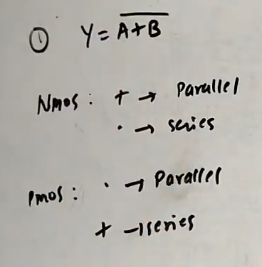 ① Y = \overline{A+B}
Nmos : + → Parallel
· → series
Pmos : · → Parallel
+ → series